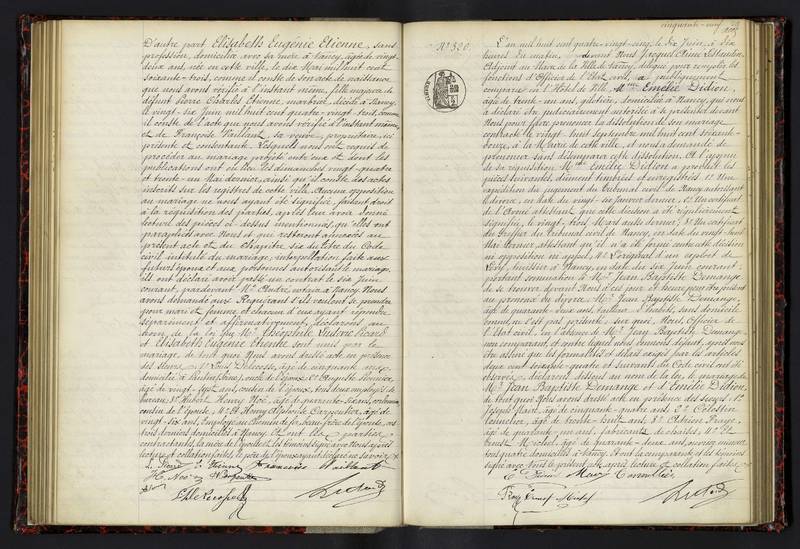 D'autre part Elisabeth Eugénie Etienne, sans
profession, domiciliée avec sa mère à Nancy, âgée de vingt-
deux ans, née en cette ville, le dix Mai mil huit cent
soixante-trois, comme il conste de son acte de naissance
que nous avons vérifié à l'instant même, fille majeure de
défunt Pierre Charles Etienne, marbrier, décédé à Nancy,
le vingt-six Juin mil huit cent quatre-vingt-trois, comme
il conste de l'acte que nous avons vérifié à l'instant même,
et de Françoise Vaillant, sa veuve, propriétaire, ici
présente et consentante. Lesquels nous ont requis de
procéder au mariage projeté entre eux et dont les
publications ont eu lieu les dimanches vingt-quatre
et trente-un Mai dernier, ainsi qu'il conste des actes
inscrits sur les registres de cette ville. Aucune opposition
au mariage ne nous ayant été signifiée, faisant droit
à la réquisition des parties, après leur avoir donné
lecture des pièces ci-dessus mentionnées, qu'elles ont
paraphées avec Nous et qui resteront annexées au
présent acte et du chapitre six du titre du Code
civil intitulé du mariage, interpellation faite aux
futurs époux et aux personnes autorisant le mariage,
ils ont déclaré avoir passé un contrat le six Juin
courant, pardevant Me André, notaire à Nancy. Nous
avons demandé aux Requérant s'ils veulent se prendre
pour mari et femme et chacun d'eux ayant répondu
séparément et affirmativement, déclarons au
nom de la loi que Mr Théophile Ludovic Picard
et Elisabeth Eugénie Etienne sont unis par le
mariage, de tout quoi Nous avons dressé acte en présence
des sieurs, 1° Louis Delacosse, âgé de cinquante ans,
domicilié à oncle de l'époux, 2° Auguste
âgé de vingt-sept ans, cousin de l'époux, tous deux employés de
bureau, 3° Hubert Henry Noé, âgé de quarante-six ans,
cousin de l'épouse, 4° et Henry Alphonse Carpentier, âgé de
vingt-six ans, Employé au Chemin de fer, beau-frère de l'épouse, ces
trois derniers domiciliés à Nancy. Et ont les parties
contractantes, la mère de l'épouse et les témoins signé avec Nous après
lecture et collation faites, le père de l'époux ayant déclaré ne savoir
L. Picard E. Etienne Françoise Vaillant
H. Noé H. Carpentier
cinquante-neuf 59
N° 320.
L'an mil huit cent quatre-vingt-cinq, le dix Juin, à dix
heures du matin, devant Nous
Adjoint au Maire de la Ville de Nancy, délégué pour remplir les
fonctions d'Officier de l'Etat civil, a publiquement
comparu en l'Hôtel de Ville, Mme Emélie Didion,
âgée de trente-un ans, giletière, domiciliée à Nancy, qui nous
a déclaré être judiciairement autorisée à se présenter devant
Nous pour faire prononcer la dissolution de son mariage
contracté le vingt-huit septembre mil huit cent soixante-
douze, à la Mairie de cette ville, et nous a demandé de
prononcer sans désemparer cette dissolution. Et à l'appui
de sa réquisition Mme Emélie Didion a produit les
pièces suivantes, dûment timbrées et enregistrées: 1° Une
expédition du jugement du Tribunal civil de Nancy autorisant
le divorce, en date du vingt-six Janvier dernier, 2° Un certificat
de l'Avoué attestant que cette décision a été régulièrement
signifiée, le vingt-trois Mars aussi dernier; 3° Un certificat
du Greffier du Tribunal civil de Nancy, en date du vingt-huit
Mai dernier, attestant qu'il n'a été formé contre cette décision
ni opposition ni appel; 4° L'original d'un exploit de
Lévy, huissier à Nancy, en date du six Juin courant,
portant sommation à Mr Jean Baptiste Demange
de se trouver devant Nous à ce jour et heure pour être présent
au prononcé du divorce. Mr Jean Baptiste Demange,
âgé de quarante-deux ans, tailleur d'habits, sans domicile
connu, ne s'est pas présenté; sur quoi, Nous, Officier de
l'Etat civil, en l'absence de Mr Jean Baptiste Demange
non comparant, et contre lequel nous donnons défaut, après nous
être assuré que les formalités et délais exigés par les articles
deux cent soixante-quatre et suivants du Code civil ont été
observés, déclarons dissous au nom de la loi, le mariage de
Mr Jean Baptiste Demange et d'Emélie Didion,
de tout quoi Nous avons dressé acte en présence des sieurs, 1°
Joseph Marx, âgé de cinquante-quatre ans; 2° Célestin
âgé de trente-huit ans; 3° Adrien
âgé de quarante-un ans, 4° et
Ernest Michel, âgé de quarante-deux ans,
tous quatre domiciliés à Nancy. Et ont la comparante et les témoins
signé avec Nous le présent acte après lecture et collation faites.
E. Didion Marx
Ernest Michel